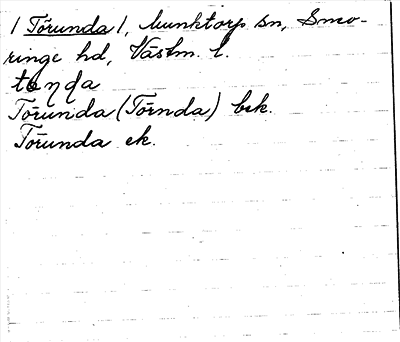 / Törunda /, Munktorp sn, Snro-
ringe hd, Västm. l.
Törunda (Törnda) bek.
Törunda ek.